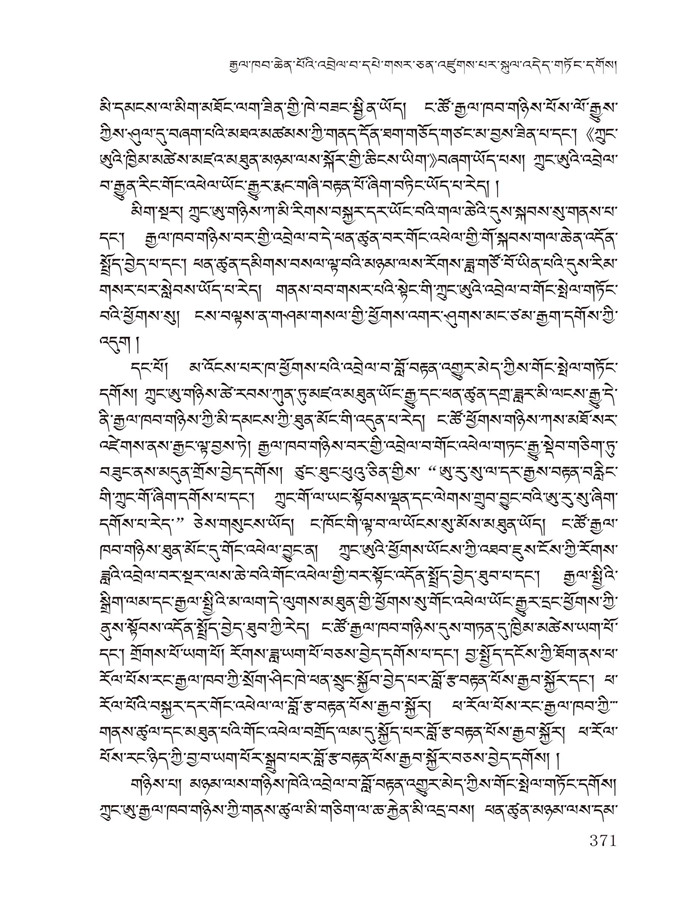 རྒྱལ་ཁབ་ཆེན་པོའི་འབྲེལ་བ་དཔེ་གསར་ཅན་འཛུགས་པར་སྐུལ་འདེད་གཏོང་དགོས།
མི་དམངས་ལ་མིག་མཐོང་ལག་ཟིན་གྱི་ཁེ་བཟང་སྤྲི་ན་ཡོད། ང་ཚོ་རྒྱལ་ཁབ་གཉིས་པོས་ལོ་རྒྱུས་
ཀྱིས་ཤུལ་དུ་བཞག་པའི་མཐའ་མཚམས་ཀྱི་གནད་དོན་ཐག་གཅོད་གཙང་མ་བྱས་ཟིན་པ་དང་། 《ཀྲུང་
ཨུའི་ཁྱིམ་མཚེས་མཛའ་མཐུན་མཉམ་ལས་སྐོར་གྱི་ཆིངས་ཡིག》བཞག་ཡོད་པས། ཀྲུང་ཨུའི་འབྲེལ་
བ་རྒྱུན་རིང་གོང་འཕེལ་ཡོང་རྒྱུར་རྨང་གཞི་བརྟན་པོ་ཞིག་བཏིང་ཡོད་པ་རེད། །
མིག་སྔར། ཀྲུང་ཨུ་གཉིས་ཀ་མི་རིགས་བསྐྱར་དར་ཡོང་བའི་གལ་ཆེའི་དུས་སྐབས་སུ་གནས་པ་
དང་། རྒྱལ་ཁབ་གཉིས་བར་གྱི་འབྲེལ་བ་དེ་ཕན་ཚུན་བར་གོང་འཕེལ་གྱི་གོ་སྐབས་གལ་ཆེན་འདོན་
སྤྲོད་བྱེད་པ་དང་། ཕན་ཚུན་དམིགས་བསལ་ལྟ་བའི་མཉམ་ལས་རོགས་ཟླ་གཙོ་བོ་ཡིན་པའི་དུས་རིམ་
གསར་པར་སླེབས་ཡོད་པ་རེད། གནས་བབ་གསར་པའི་སྟེང་གི་ཀྲུང་ཨུའི་འབྲེལ་བ་གོང་སྤེལ་གཏོང་
བའི་ཕྱོགས་སུ། ངས་བལྟས་ན་གཤམ་གསལ་གྱི་ཕྱོགས་འགར་ཤུགས་མང་ཙམ་རྒྱག་དགོས་ཀྱི་
འདུག །
དང་པོ། མ་འོངས་པར་ཁ་ཕྱོགས་པའི་འབྲེལ་བ་བློ་བརྟན་འགྱུར་མེད་ཀྱིས་གོང་སྤེལ་གཏོང་
དགོས། ཀྲུང་ཨུ་གཉིས་ཚེ་རབས་ཀུན་ཏུ་མཛའ་མཐུན་ཡོང་རྒྱུ་དང་ཕན་ཚུན་དགྲ་ཟླར་མི་ལངས་རྒྱུ་དེ་
ནི་རྒྱལ་ཁབ་གཉིས་ཀྱི་མི་དམངས་ཀྱི་ཐུན་མོང་གི་འདུན་པ་རེད། ང་ཚོ་ཕྱོགས་གཉིས་ཀས་མཐོ་སར་
འཛེགས་ནས་རྒྱང་ལྟ་བྱས་ཏེ། རྒྱལ་ཁབ་གཉིས་བར་གྱི་འབྲེལ་བ་གོང་འཕེལ་གཏང་རྒྱུ་སྡེབ་གཅིག་ཏུ་
བཟུང་ནས་མདུན་གྲོས་བྱེད་དགོས། ཙུང་ཐུང་ཕུའུ་ཅིན་གྱིས་ “ཨུ་རུ་སུ་ལ་དར་རྒྱས་བརྟན་བརླིང་
གི་ཀྲུང་གོ་ཞིག་དགོས་པ་དང་། ཀྲུང་གོ་ལ་ཡང་སྟོབས་ལྡན་དང་ལེགས་གྲུབ་བྱུང་བའི་ཨུ་རུ་སུ་ཞིག་
དགོས་པ་རེད་” ཅེས་གསུངས་ཡོད། ང་ཁོང་གི་ལྟ་བ་ལ་ཡོངས་སུ་མོས་མཐུན་ཡོད། ང་ཚོ་རྒྱལ་
ཁབ་གཉིས་ཐུན་མོང་དུ་གོང་འཕེལ་བྱུང་ན། ཀྲུང་ཨུའི་ཕྱོགས་ཡོངས་ཀྱི་འཐབ་ཇུས་ངོས་ཀྱི་རོགས་
ཟླའི་འབྲེལ་བར་སྔར་ལས་ཆེ་བའི་གོང་འཕེལ་གྱི་བར་སྟོང་འདོན་སྤྲོད་བྱེད་ཐུབ་པ་དང་། རྒྱལ་སྤྱིའི་
སྒྲིག་ལམ་དང་རྒྱལ་སྤྱིའི་མ་ལག་དེ་ལུགས་མཐུན་གྱི་ཕྱོགས་སུ་གོང་འཕེལ་ཡོང་རྒྱུར་དྲང་ཕྱོགས་ཀྱི་
ནུས་སྟོབས་འདོན་སྤྲོད་བྱེད་ཐུབ་ཀྱི་རེད། ང་ཚོ་རྒྱལ་ཁབ་གཉིས་དུས་གཏན་དུ་ཁྱིམ་མཚེས་ཡག་པོ་
དང་། གྲོགས་པོ་ཡག་པོ། རོགས་ཟླ་ཡག་པོ་བཅས་བྱེད་དགོས་པ་དང་། བྱ་སྤྱོད་དངོས་ཀྱི་ཐོག་ནས་ཕ་
རོལ་པོས་རང་རྒྱལ་ཁབ་ཀྱི་སྲོག་ཤིང་ཁེ་ཕན་སྲུང་སྐྱོབ་བྱེད་པར་བློ་རྩ་བརྟན་པོས་རྒྱབ་སྐྱོར་དང་། ཕ་
རོལ་པོའི་བསྐྱར་དར་གོང་འཕེལ་ལ་བློ་རྩ་བརྟན་པོས་རྒྱབ་སྐྱོར། ཕ་རོལ་པོས་རང་རྒྱལ་ཁབ་ཀྱི་
གནས་ཚུལ་དང་མཐུན་པའི་གོང་འཕེལ་བགྲོད་ལམ་དུ་སྐྱོད་པར་བློ་རྩ་བརྟན་པོས་རྒྱབ་སྐྱོར། ཕ་རོལ་
པོས་རང་ཉིད་ཀྱི་བྱ་བ་ཡག་པོར་སྒྲུབ་པར་བློ་རྩ་བརྟན་པོས་རྒྱབ་སྐྱོར་བཅས་བྱེད་དགོས། །
གཉིས་པ། མཉམ་ལས་གཉིས་ཁེའི་འབྲེལ་བ་བློ་བརྟན་འགྱུར་མེད་ཀྱིས་གོང་སྤེལ་གཏོང་དགོས།
ཀྲུང་ཨུ་རྒྱལ་ཁབ་གཉིས་ཀྱི་གནས་ཚུལ་མི་གཅིག་ལ་ཆ་རྐྱེན་མི་འདྲ་བས། ཕན་ཚུན་མཉམ་ལས་དམ་
371